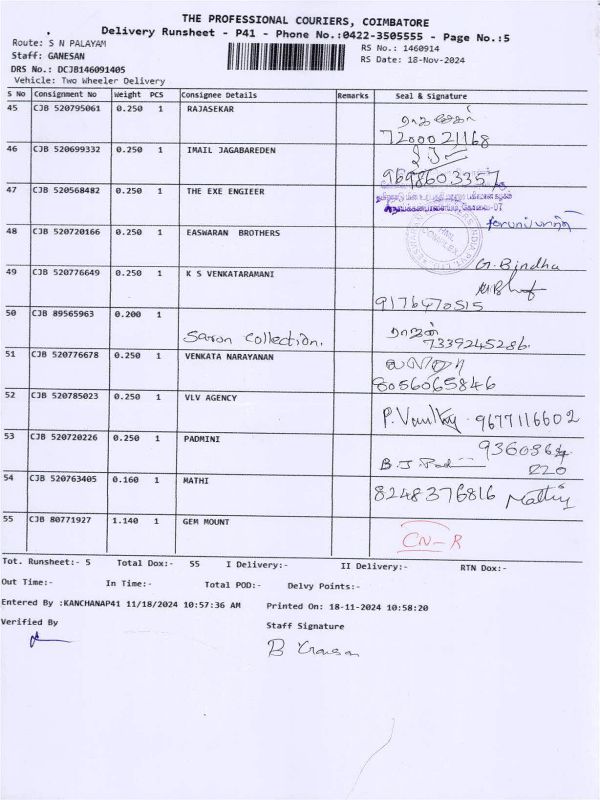 THE PROFESSIONAL COURIERS, COIMBATORE
Delivery Runsheet - P41 - Phone No.:0422-3505555 - Page No.:5
Route: S N PALAYAM
RS No.: 1460914
Staff: GANESAN
RS Date: 18-Nov-2024
DRS No.: DCJB146091405
Vehicle: Two Wheeler Delivery
S No Consignment No Weight PCS Consignee Details Remarks Seal & Signature
45 CJB 520795061 0.250 1 RAJASEKAR
7200021168
46 CJB 520699332 0.250 1 IMAIL JAGABAREDEN
9698603357
47 CJB 520568482 0.250 1 THE EXE ENGIEER
48 CJB 520720166 0.250 1 EASWARAN BROTHERS
G. Bindha
49 CJB 520776649 0.250 1 K S VENKATARAMANI
9176470515
50 CJB 89565963 0.200 1
Saron Collection.
ராஜன்
7339245286.
51 CJB 520776678 0.250 1 VENKATA NARAYANAN
8056065846
52 CJB 520785023 0.250 1 VLV AGENCY
9677116602
53 CJB 520720226 0.250 1 PADMINI
220
54 CJB 520763405 0.160 1 MATHI
8248376816 Mathy
55 CJB 80771927 1.140 1 GEM MOUNT
CN-R
Tot. Runsheet:- 5 Total Dox:- 55 I Delivery:- II Delivery:- RTN Dox:-
Out Time:- In Time:- Total POD:- Delvy Points:-
Entered By :KANCHANAP41 11/18/2024 10:57:36 AM Printed On: 18-11-2024 10:58:20
Verified By Staff Signature